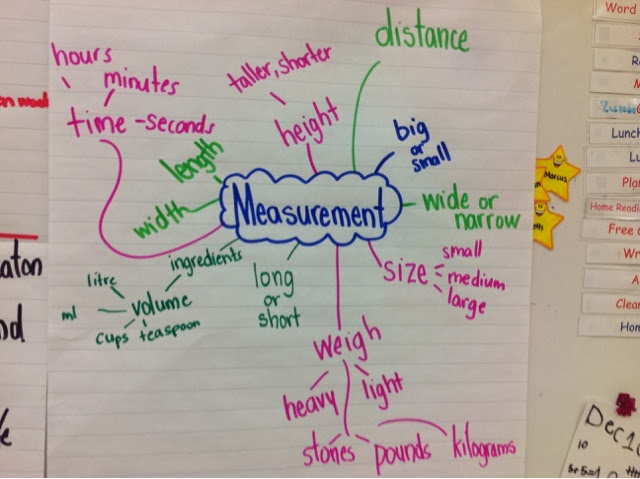 hours
minutes
time - seconds
taller, shorter
height
distance
big
or
small
length
width
Measurement
wide or
narrow
ingredients
litre
ml
volume
cups
teaspoon
long
or
short
size
small
medium
large
weigh
heavy
light
stones
pounds
kilograms
Word
Lunch
Home Readi
Free
Wr
Clean
Marcus
Dec
10